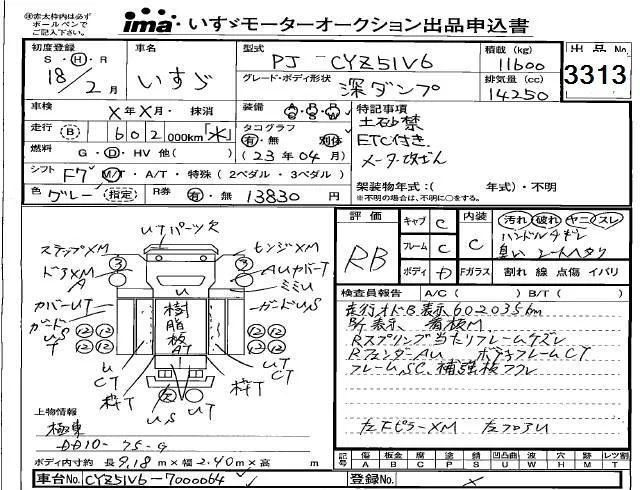 ㊟赤太枠内は必ず
ボールペンで
ご記入下さい。
ima いすゞモーターオークション出品申込書
初度登録
S・Ⓗ・R
18/2月
車名
いすゞ
型式
PJ-CYZ51V6
グレード・ボディ形状
深ダンプ
積載(kg)
11600
排気量(cc)
14250
出品No.
3313
車検
X年X月・抹消
装備
走行(B) 602000km「水」
タコグラフ
有・無 別体
(23年04月)
燃料
G・D・HV 他( )
シフト F7 M/T・A/T・特殊(2ペダル・3ペダル)
色 グレー(指定)
R券 有・無 13830円
特記事項
土砂禁
ETC付き.
メーター改ざん
架装物年式:( 年式)・不明
※不明の場合は、不明に○をする。
評価
RB
キャブ C
フレーム C
ボディ D
内装 C
汚れ 破れ ヤニ スレ
ハンドルキレ
臭い シートヘタリ
Fガラス 割れ 線 点傷 イバリ
検査員報告 A/C( ) B/T( )
走行オドB表示602035km
B斤表示、看板M.
Rスプリング当たりフレームケズレ
RフェンダーAU ボデーフレームCT
フレームSC、補強板フクレ
左FピラーXM 左フロアU
UTパーツ欠
ステップXM
ヒンジXM
ドアXM
A
AUカバーT
ミミU
カバーUT
ガードUS
U
樹脂板
AT
UT
CT
枠T
US
上物情報
極東
DD10-75-G
ボディ内寸約 長9.18m×幅2.40m×高 m
記号 傷A 板金B 腐C 塗P サビS 凹凸曲U 波W 穴H 跡M レツ割T
車台No. CYZ51V6-7000064
登録No. X